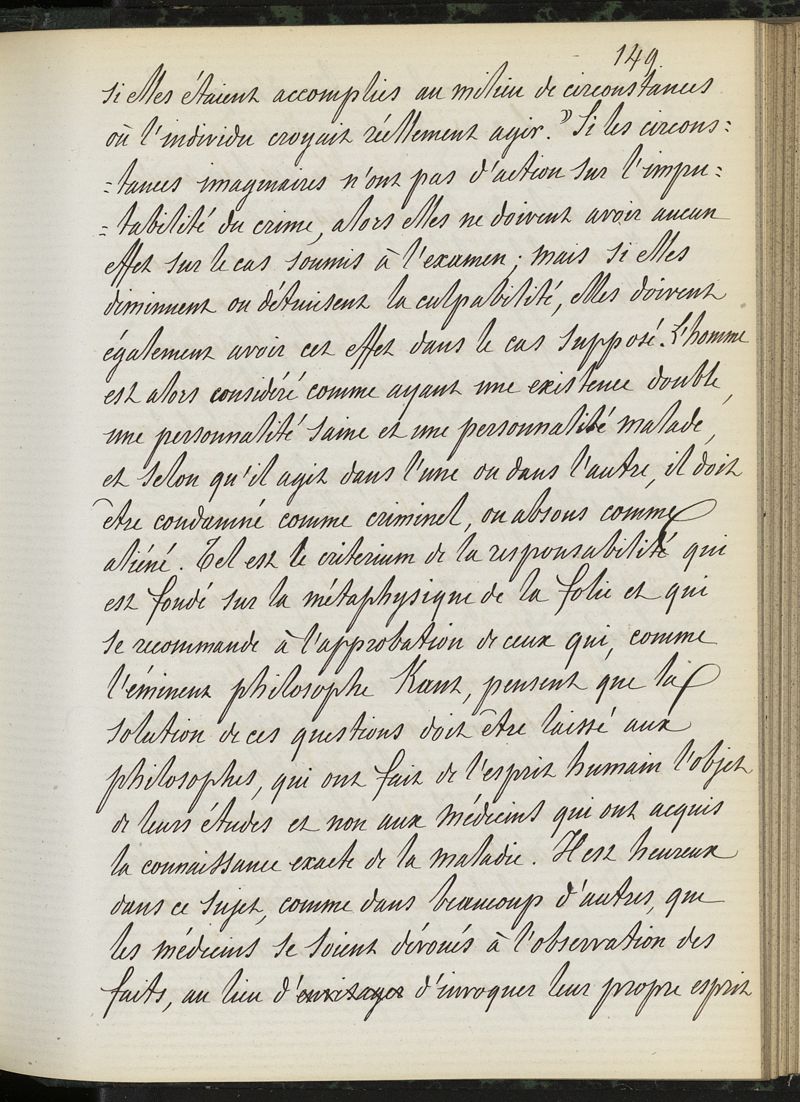 149.
si elles étaient accomplies au milieu de circonstances
où l'individu croyait réellement agir. » Si les circons=
=tances imaginaires n'ont pas d'action sur l'impu=
=tabilité du crime, alors elles ne doivent avoir aucun
effet sur le cas soumis à l'examen ; mais si elles
diminuent ou détruisent la culpabilité, elles doivent
également avoir cet effet dans le cas supposé. L'homme
est alors considéré comme ayant une existence double,
une personnalité saine et une personnalité malade,
et selon qu'il agit dans l'une ou dans l'autre, il doit
être condamné comme criminel, ou absous comme
aliéné. Tel est le criterium de la responsabilité qui
est fondé sur la métaphysique de la folie et qui
se recommande à l'approbation de ceux qui, comme
l'éminent philosophe Kant, pensent que la
solution de ces questions doit être laissé aux
philosophes, qui ont fait de l'esprit humain l'objet
de leurs études et non aux médecins qui ont acquis
la connaissance exacte de la maladie. Il est heureux
dans ce sujet, comme dans beaucoup d'autres, que
les médecins se soient dévoués à l'observation des
faits, au lieu d'envisager d'invoquer leur propre esprit